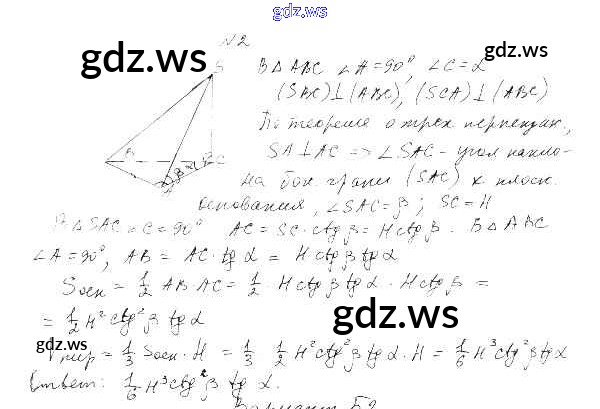 gdz.ws
N2
gdz.ws
gdz.ws
S
В △ ABC ∠A = 90°, ∠C = α
(SBC) ⊥ (ABC), (SCA) ⊥ (ABC)
По теореме о трех перпендик.,
SA ⊥ AC => ∠SAC - угол накло-
на бок. грани (SAC) к плоск.
основания, ∠SAC = β; SC = H
В △ SAC ∠C = 90° AC = SC · ctg β = H ctg β. В △ ABC
∠A = 90°, AB = AC · tg α = H ctg β tg α
Sосн = 1/2 AB · AC = 1/2 · H ctg β tg α · H ctg β =
= 1/2 H² ctg² β tg α
gdz.ws
gdz.ws
Vпир = 1/3 Sосн · H = 1/3 · 1/2 H² ctg² β tg α · H = 1/6 H³ ctg² β tg α
Ответ: 1/6 H³ ctg² β tg α.
gdz.ws
Вариант Б2